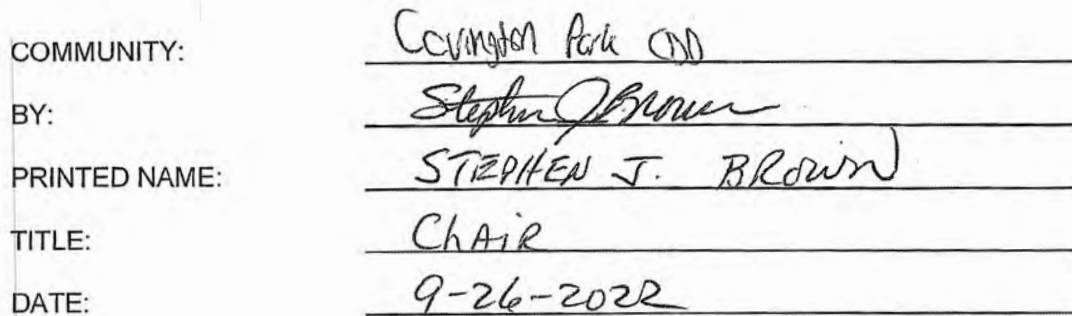 COMMUNITY: Covington Park CDD
BY: Stephen J Brown
PRINTED NAME: STEPHEN J. BROWN
TITLE: ChAiR
DATE: 9-26-2022